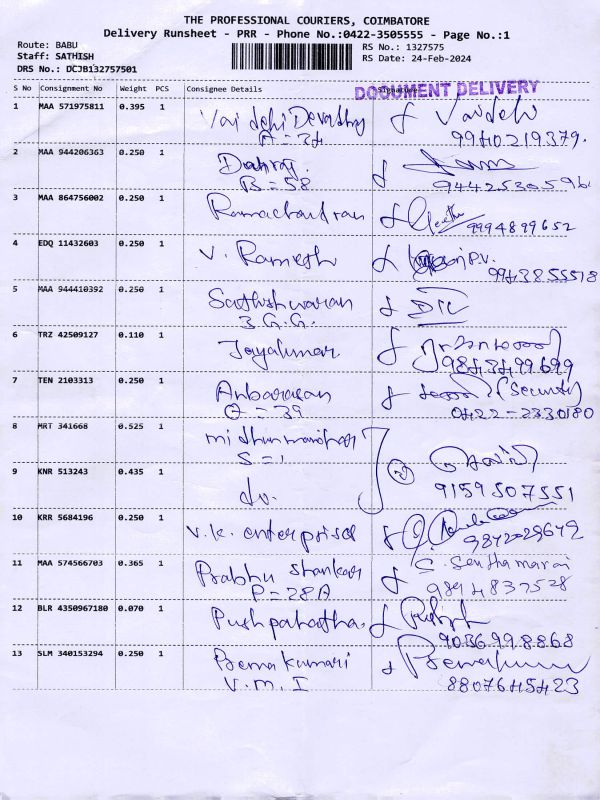 THE PROFESSIONAL COURIERS, COIMBATORE
Delivery Runsheet - PRR - Phone No.:0422-3505555 - Page No.:1
Route: BABU
Staff: SATHISH
DRS No.: DCJB132757501
RS No.: 1327575
RS Date: 24-Feb-2024
DOCUMENT DELIVERY
S No Consignment No Weight PCS Consignee Details Signature
1 MAA 571975811 0.395 1 Vaidehi
A = 34
9940219379.
2 MAA 944206363 0.250 1
B = 58
9442530596
3 MAA 864756002 0.250 1 Ramachandran
9994899652
4 EDQ 11432603 0.250 1 V. Ramesh P.V.
9943855518
5 MAA 944410392 0.250 1 Sathishwaran
3 G.G.
6 TRZ 42509127 0.110 1 Jayakumar
9843499699
7 TEN 2103313 0.250 1 Anbarasan (Security)
A = 39
0422-2330180
8 MRT 341668 0.525 1
S = 1
9 KNR 513243 0.435 1 do.
9159507551
10 KRR 5684196 0.250 1 V.K. enterprises
9842029679
11 MAA 574566703 0.365 1 Prabhu Shankar S. Senthamarai
P = 28A
9894837528
12 BLR 4350967180 0.070 1
9036998868
13 SLM 340153294 0.250 1 Premakumari
V.M.I
8807645423